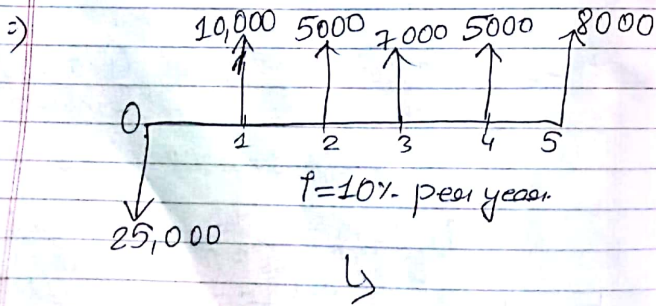 =)
10,000 5000 7000 5000 8000
0
1 2 3 4 5
i=10% per year.
25,000